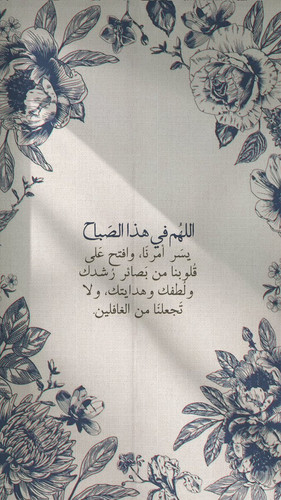 اللهُم في هذا الصَباح
يسَر أمرنَا، وافتح عَلى
قُلوبنا من بَصائر رُشدك
ولُطفك وهدايتك، ولا
تَجعلنَا من الغافلين.